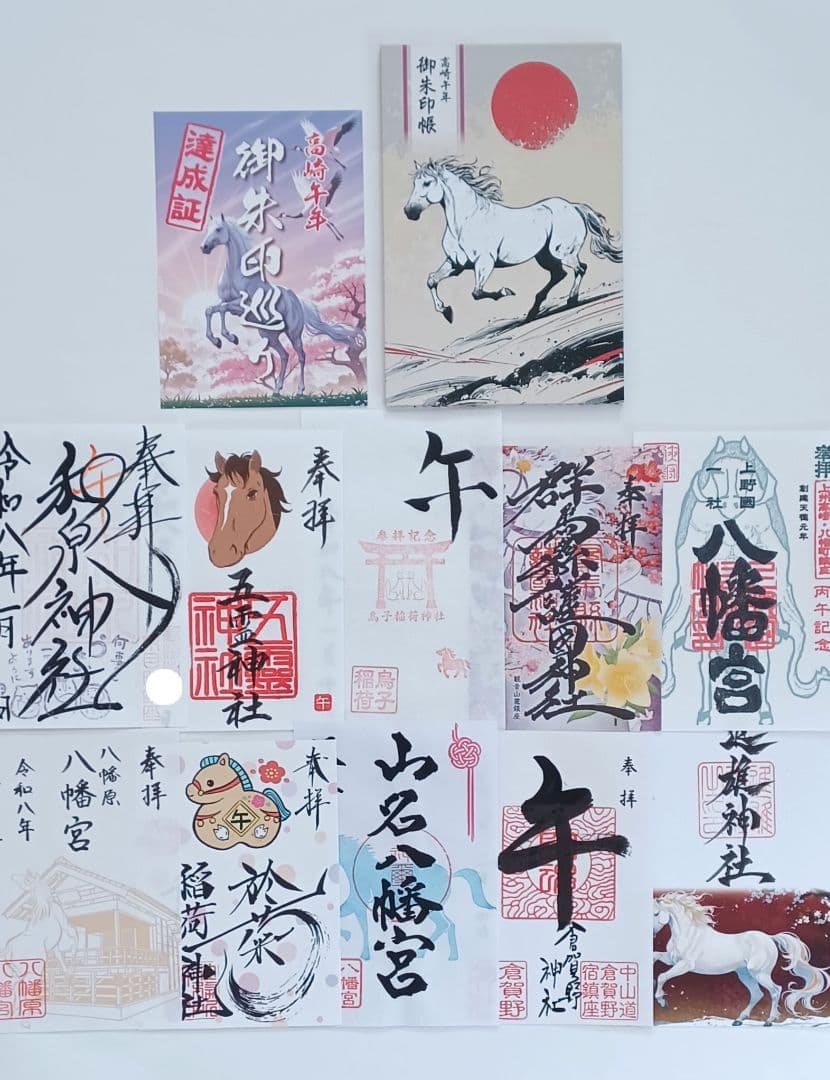 達成証
高崎午年
御朱印巡り
高崎午年
御朱印帳
奉拝
午
和泉神社
令和八年一月
奉拝
五霊神社
五霊神社
午
午
参拝記念
烏子稲荷神社
烏子稲荷
奉拝
群馬縣護国神社
観音山麓鎮座
奉拝
上野國一社
八幡宮
創建天慶元年
丙午記念
奉拝
八幡原
八幡宮
令和八年
八幡原
八幡宮
奉拝
午
於菊
稲荷神社
山名八幡宮
八幡宮
奉拝
午
倉賀野神社
倉賀野
中山道
倉賀野
宿鎮座
進雄神社